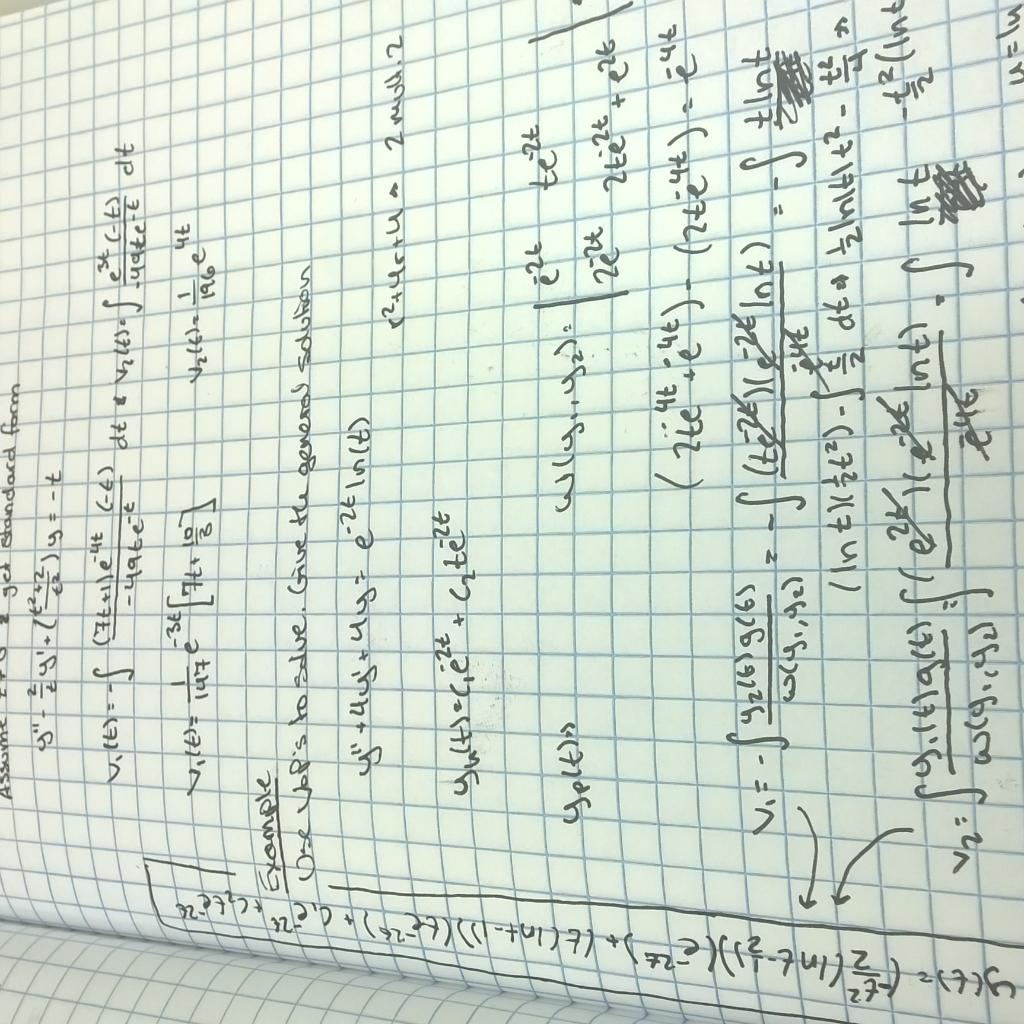 Assume t≠0 & get standard form
y'' - 2/t y' + (t²+2/t²) y = -t
v₁(t) = -∫ (7t+1)e^-4t (-t) / -49te^-t dt & v₂(t) = ∫ e^3t (-t) / -49te^-t dt
v₁(t) = 1/147 e^-3t [7t + 10/3] v₂(t) = 1/196 e^4t
Example
Use VOP to solve. Give the general solution
y'' + 4y' + 4y = e^-2t ln(t) r²+4r+4 ⇒ 2 mult. 2
yₕ(t) = c₁e^-2t + c₂te^-2t
yp(t) ⇒ W(y₁, y₂) = | e^-2t te^-2t |
| 2e^-2t 2te^-2t + e^-2t |
(2te^-4t + e^-4t) - (2te^-4t) = e^-4t
v₁ = -∫ y₂(t)g(t) / W(y₁,y₂) = -∫ (te^-2t)(e^-2t ln t) / e^-4t = -∫ t ln t
(ln t)(½t²) - ∫ t/2 dt ⇒ ½ ln(t) t² - t²/4 ⇒
-t²/2 (ln t
v₂ = ∫ y₁(t)g(t) / W(y₁,y₂) = ∫ (e^2t)(e^-2t ln t) / e^-4t = ∫ ln t
u = ln
y(t) = (-t²/2 (ln t - ½))(e^-2t) + (t(ln t - 1))(te^-2t) + c₁e^-2t + c₂te^-2t